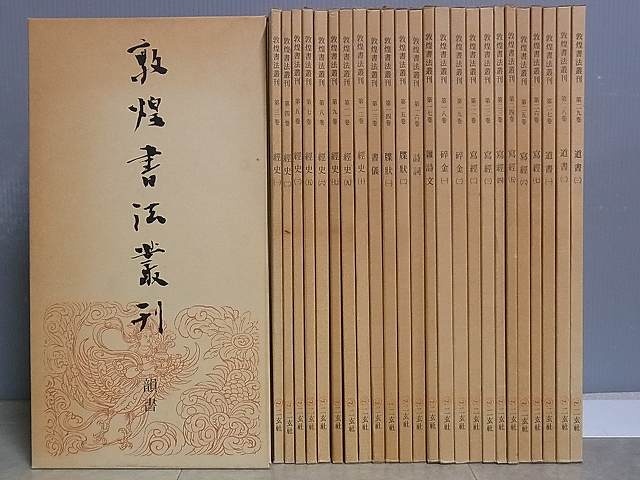 敦煌書法叢刊
韻書
敦煌書法叢刊 第三巻 經史(一) 二玄社
敦煌書法叢刊 第四巻 經史(二) 二玄社
敦煌書法叢刊 第五巻 經史(三) 二玄社
敦煌書法叢刊 第七巻 經史(五) 二玄社
敦煌書法叢刊 第八巻 經史(六) 二玄社
敦煌書法叢刊 第九巻 經史(七) 二玄社
敦煌書法叢刊 第一一巻 經史(九) 二玄社
敦煌書法叢刊 第一二巻 經史(十) 二玄社
敦煌書法叢刊 第一三巻 書儀 二玄社
敦煌書法叢刊 第一四巻 牒狀(一) 二玄社
敦煌書法叢刊 第一五巻 牒狀(二) 二玄社
敦煌書法叢刊 第一六巻 詩詞 二玄社
敦煌書法叢刊 第一七巻 雜詩文 二玄社
敦煌書法叢刊 第一八巻 碎金(一) 二玄社
敦煌書法叢刊 第一九巻 碎金(二) 二玄社
敦煌書法叢刊 第二一巻 寫經(二) 二玄社
敦煌書法叢刊 第二二巻 寫經(三) 二玄社
敦煌書法叢刊 第二三巻 寫經(四) 二玄社
敦煌書法叢刊 第二四巻 寫經(五) 二玄社
敦煌書法叢刊 第二五巻 寫經(六) 二玄社
敦煌書法叢刊 第二六巻 寫經(七) 二玄社
敦煌書法叢刊 第二七巻 道書(一) 二玄社
敦煌書法叢刊 第二八巻 道書(二) 二玄社
敦煌書法叢刊 第二九巻 道書(三) 二玄社